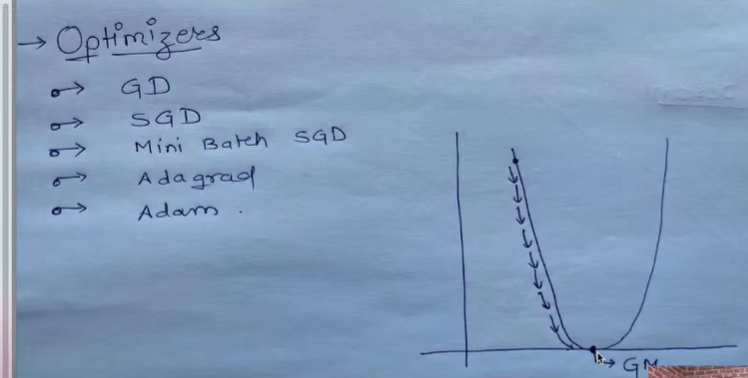 → Optimizers
→ GD
→ SGD
→ Mini Batch SGD
→ Adagrad
→ Adam .
→ GM